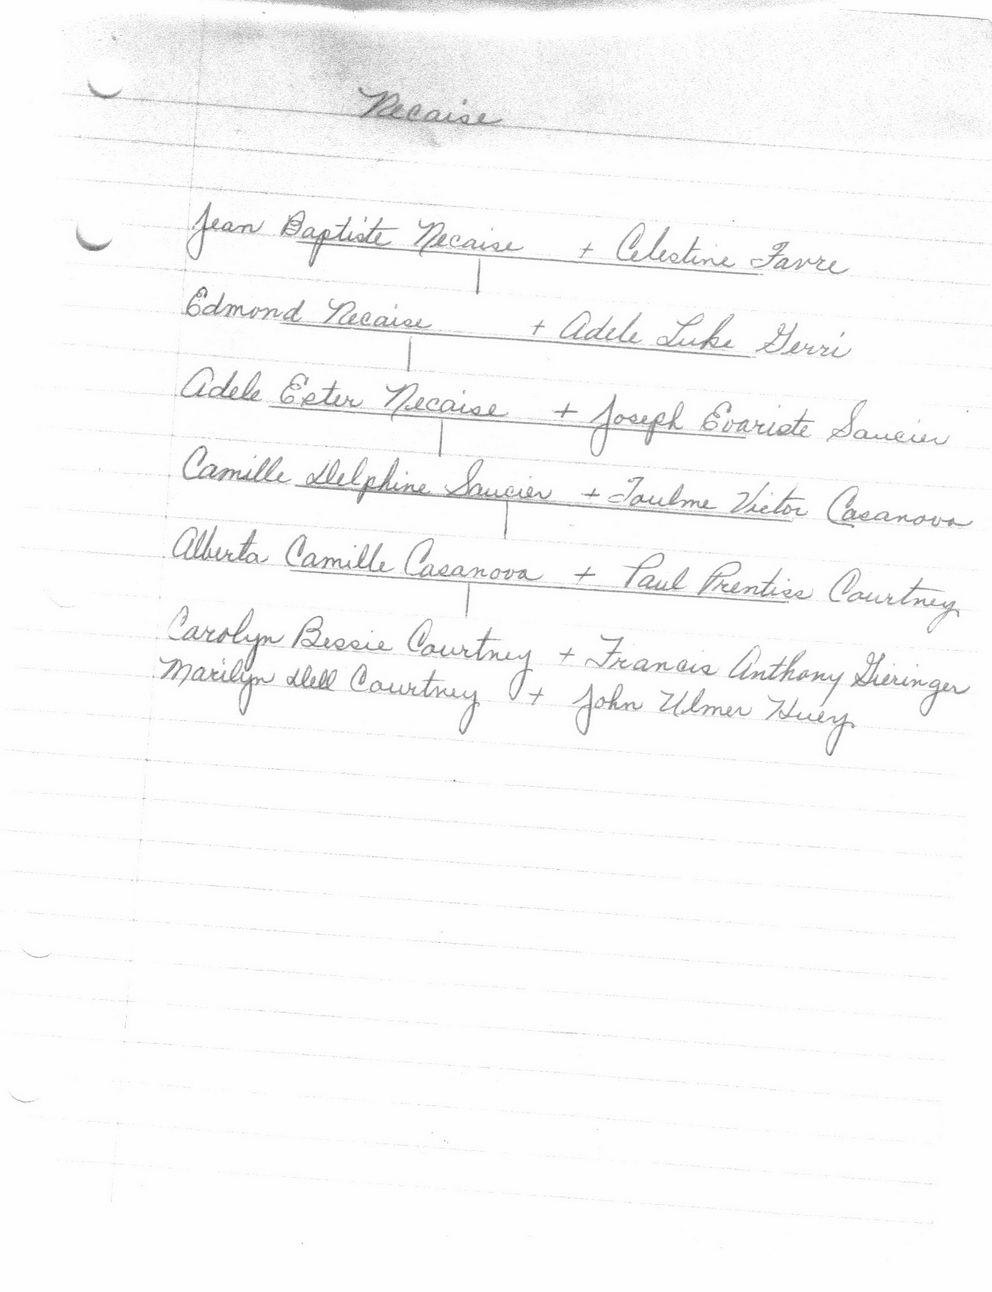 Necaise
Jean Baptiste Necaise + Celestine Favre
Edmond Necaise + Adele Luke Gerri
Adele Ester Necaise + Joseph Evariste Saucier
Camille Delphine Saucier + Toulme Victor Casanova
Alberta Camille Casanova + Paul Prentiss Courtney
Carolyn Bessie Courtney + Francis Anthony Gieringer
Marilyn Dell Courtney + John Ulmer Huey